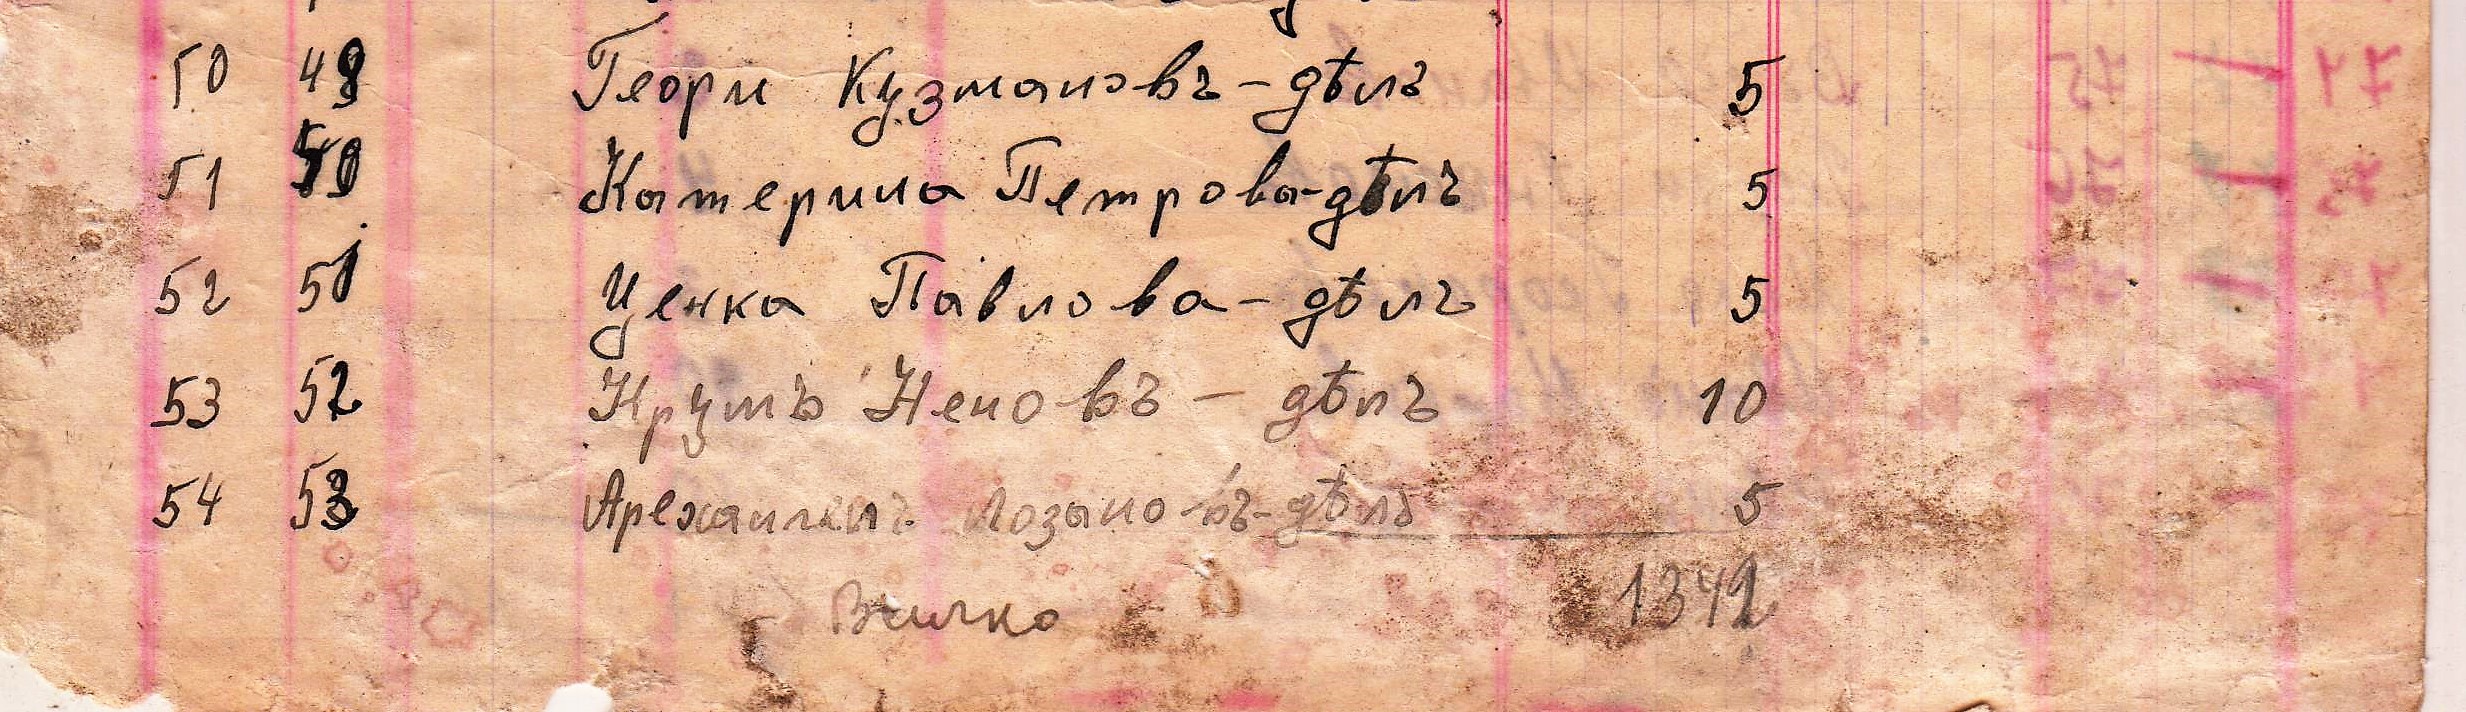 50 49 Георги Кузмановъ - дѣлъ 5
51 50 Катерина Петрова - дѣлъ 5
52 51 Ценка Павлова - дѣлъ 5
53 52 Крумъ Неновъ - дѣлъ 10
54 53 Лозановъ - дѣлъ 5
Всичко 1342